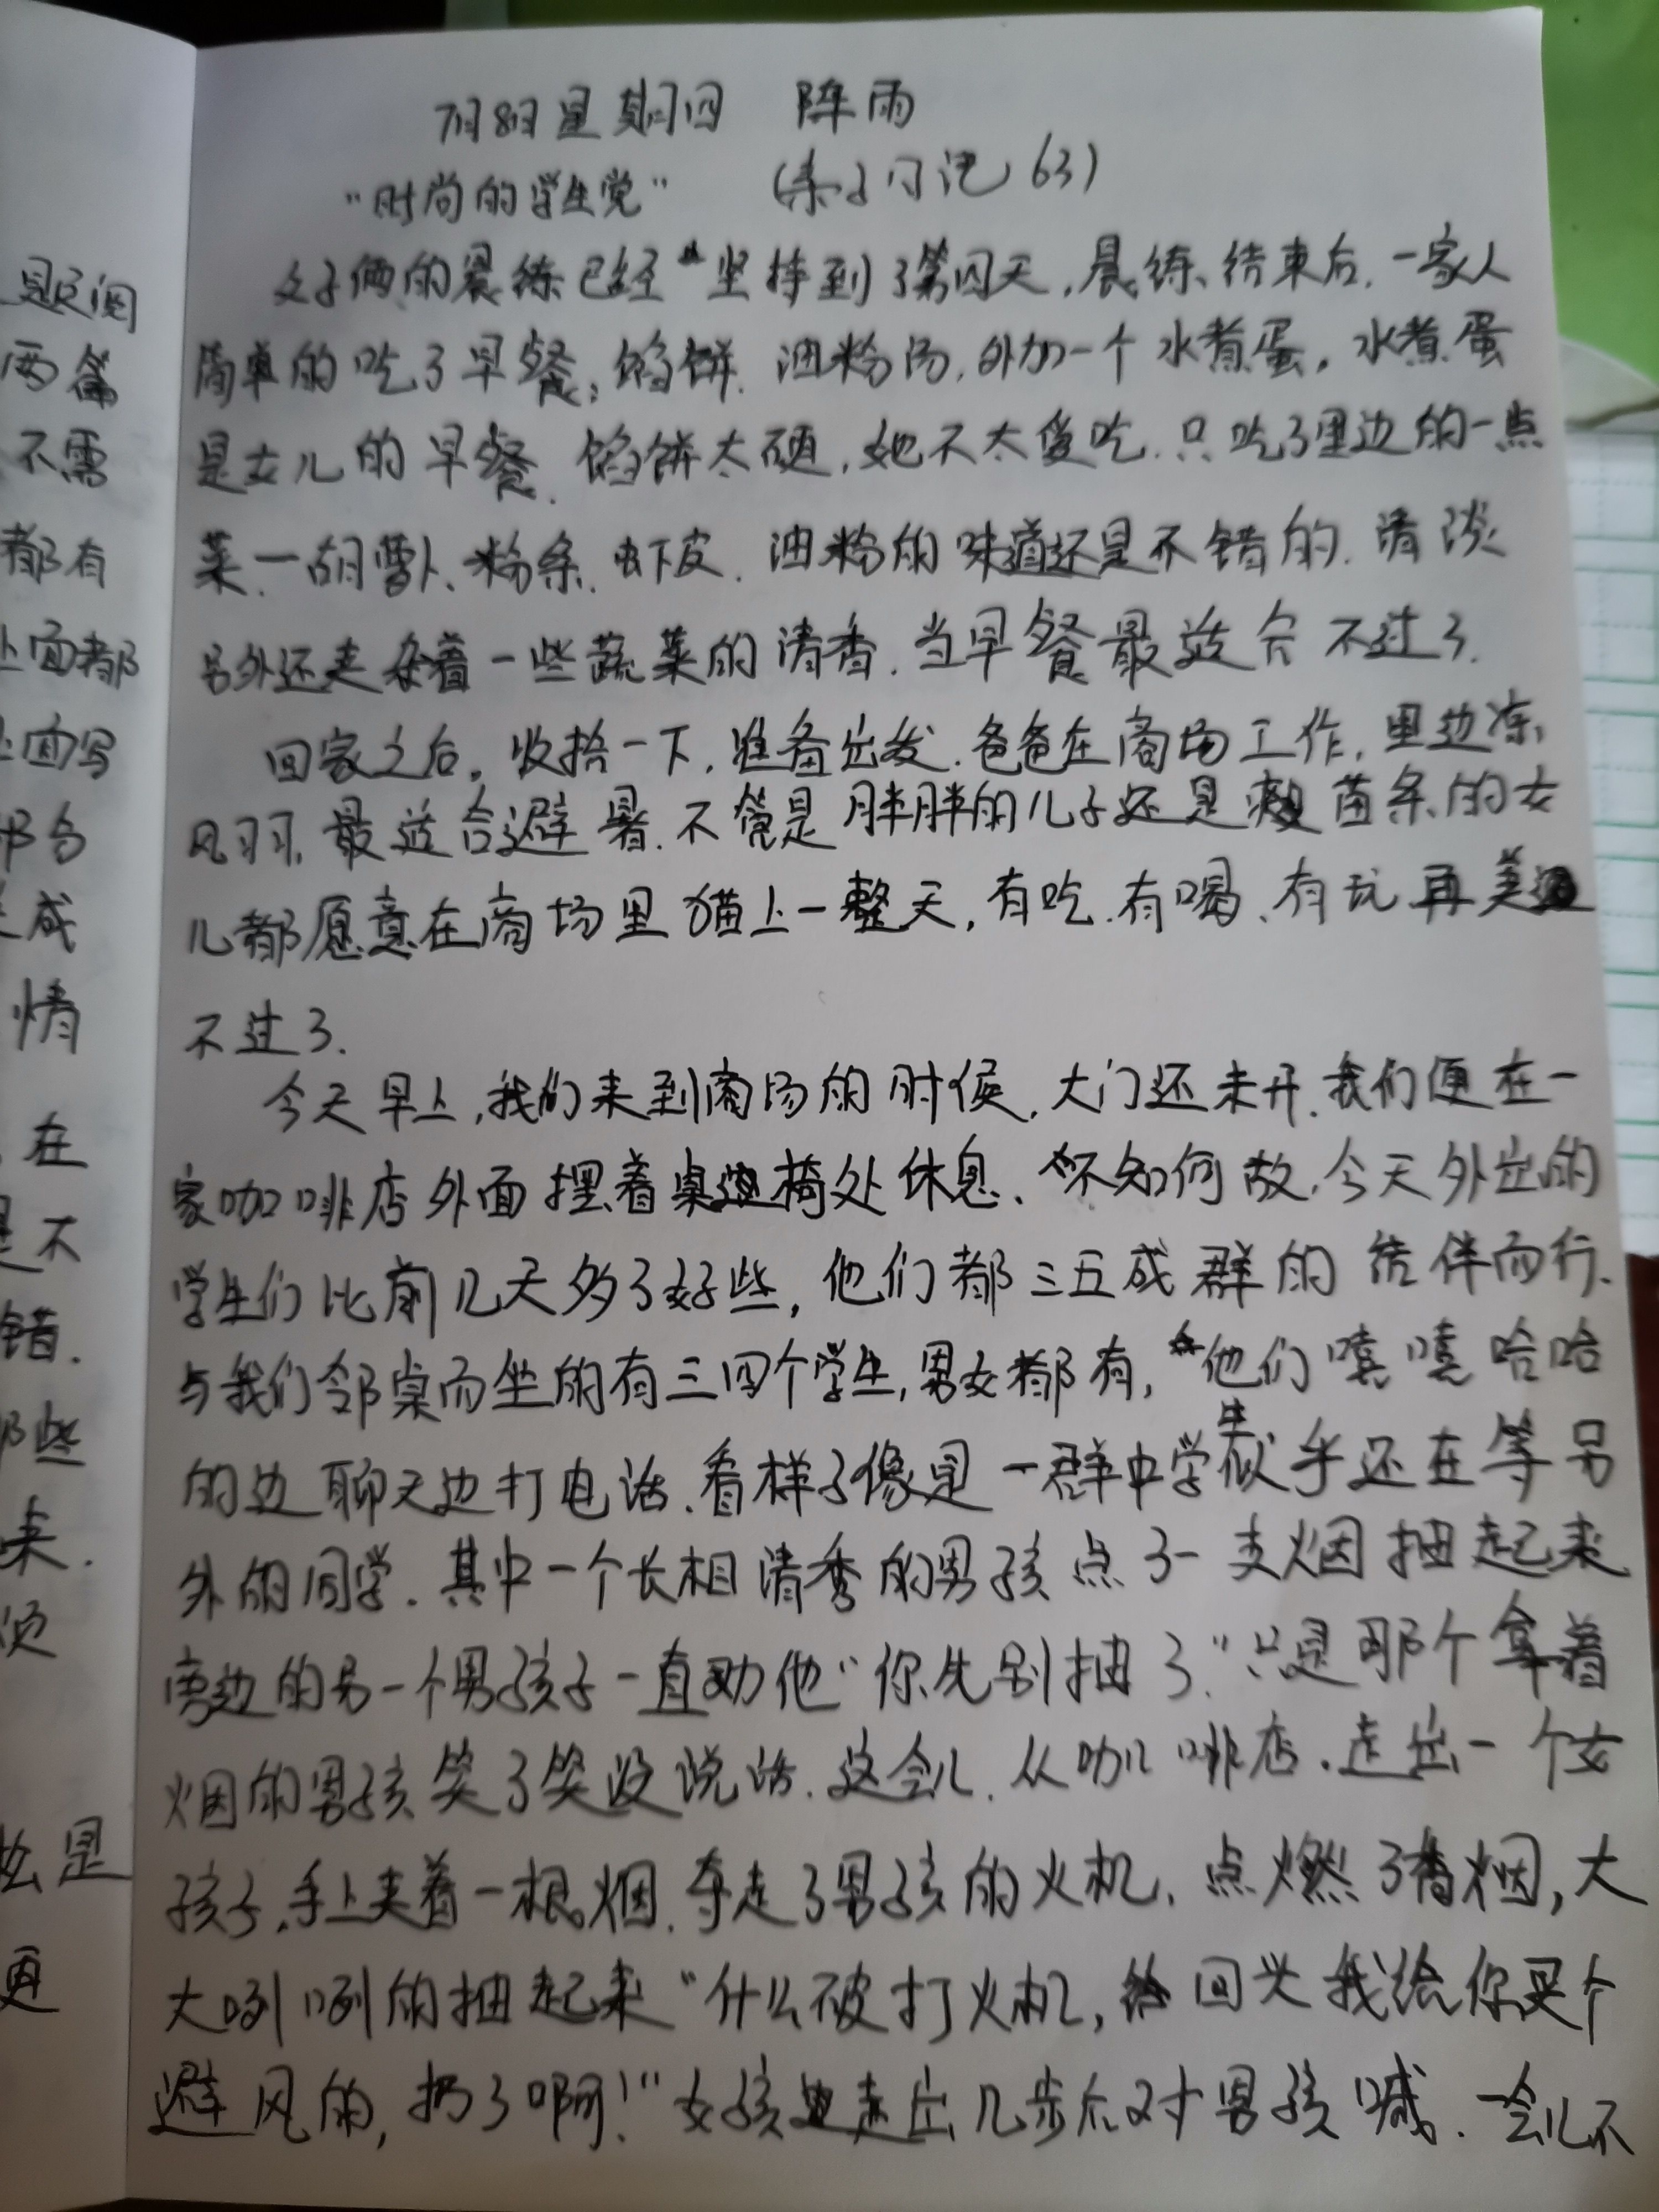 7月8日星期四 阵雨
"时尚的学生党" (亲子日记63)
父子俩的晨练已经坚持到了第四天,晨练结束后,一家人
简单的吃了早餐;馅饼、油粉汤,外加一个水煮蛋,水煮蛋
是女儿的早餐、馅饼太硬,她不太爱吃、只吃了里边的一点
菜、一胡萝卜、粉条、虾皮、油粉的味道还是不错的、清淡
另外还夹杂着一些蔬菜的清香、当早餐最适合不过了.
回家之后,收拾一下,准备出发、爸爸在商场工作,里边凉
风习习,最适合避暑、不管是胖胖的儿子还是苗条的女
儿都愿意在商场里猫上一整天,有吃、有喝、有玩再美
不过了.
今天早上,我们来到商场的时候,大门还未开、我们便在一
家咖啡店外面摆着桌椅处休息、不知何故,今天外出的
学生们比前几天多了好些,他们都三五成群的结伴而行、
与我们邻桌而坐的有三四个学生,男女都有,他们嘻嘻哈哈
的边聊天边打电话、看样子像是一群中学生似乎还在等另
外的同学.其中一个长相清秀的男孩点了一支烟抽起来
旁边的另一个男孩子一直劝他"你先别抽了"只是那个拿着
烟的男孩笑了笑没说话、这会儿、从咖啡店、走出一个女
孩子,手上夹着一根烟、夺走了男孩的火机,点燃了香烟,大
大咧咧的抽起来"什么破打火机,回头我给你买个
避风的,扔了啊!"女孩走出几步后对男孩喊、一会儿不
题阅
两篇
不需
都有
上面都
上面写
成
情
在
是不
错.
那些
来.
是
再